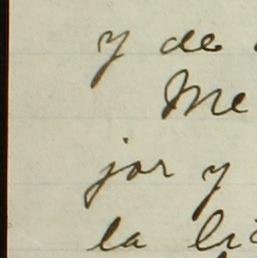 y de
Me
jor y
la li